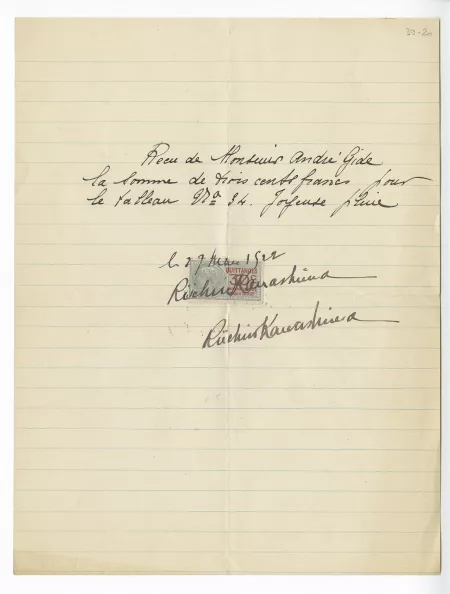 33-2
Recu de Monsieur André Gide
la Somme de trois cents francs pour
le tableau No 34. Joyeuse pluie
le 29 Mars 1922
QUITTANCES
Riichiro Kawashima
Riichiro Kawashima